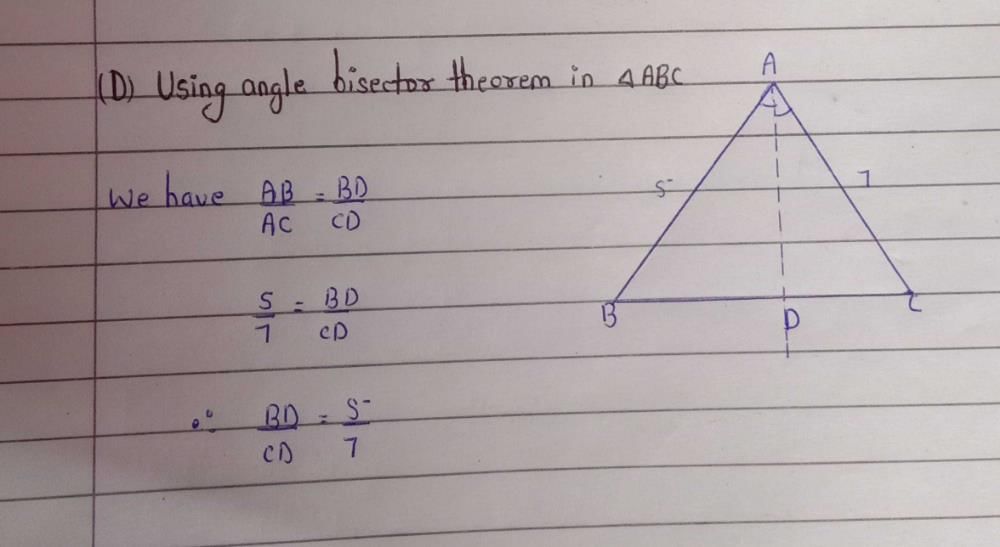 (D) Using angle bisector theorem in △ABC
We have AB/AC = BD/CD
5/7 = BD/CD
∴ BD/CD = 5/7
A
5
7
B
D
C